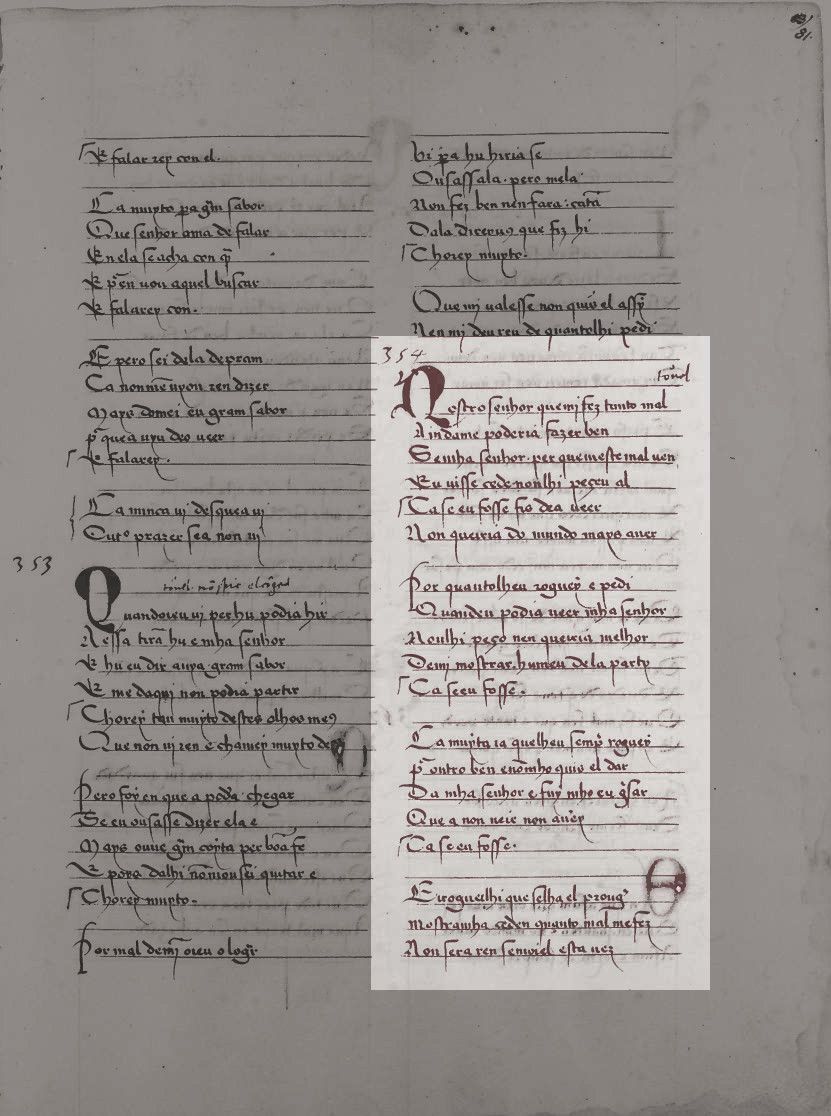 E falar rey con el.
Ca muyto pa gm̃ sabor
Que senhor ama de falar
En ela se acha con q̃
E pen uou aquel buscar
E falarey con.
E pero sei dela de pram
Ca non mẽ uyon ren dizer
Mays domei en gram sabor
pr que a uyu deo ueer
E falarey.
Ca nunca ui des que a ui
Outo prazer se a non ui
353
tonel
Quandoreu ui per hu podia hir
Aessa tirã hu e mha senhor
E hu eu dir auya gram sabor
E me daqui non podia partir
Chorey tan muyto destes olhos me9
Que non ui ren e chamey muyto
Pero foy en que a podia chegar
Se eu ousasse dizer ela e
Mays ouue gm̃ coyta per boa fe
E poys dalhi nõ mousei quitar e
Chorey muyto.
Por mal demi oueu o logr
81.
hi pa hu hiria se
Ousassala. pero mela
Non fez ben nen fara: catã
Dala direuus que fiz hi
Chorey muyto.
Que mi ualesse non quis el assy
Nen mi deu reu de quantolhi pedi
354
tonel
Nostro senhor que mi fez tanto mal
Aindame poderia fazer ben
Se mha senhor. per que meste mal uen
Eu uisse cede nonlhi peçeu al
Ca se eu fosse fis dea ueer
Non queiria do mundo mays auer
Por quantolheu roguey e pedi
Quandeu podia ueer mha senhor
Nonlhi peço nen queiria melhor
De mi mostrar. humeu dela party
Ca se eu fosse.
Ca muyta ia quelheu semp̃ roguey
pr outro ben e nõ mho quis el dar
Da mha senhor e fuy mho eu q̃sar
Que a non ueie non auey
Ca se eu fosse.
E roguelhi que se lha el proug
mostramha ceden quanto mal me fez
Non sera ren senwiel esta uez